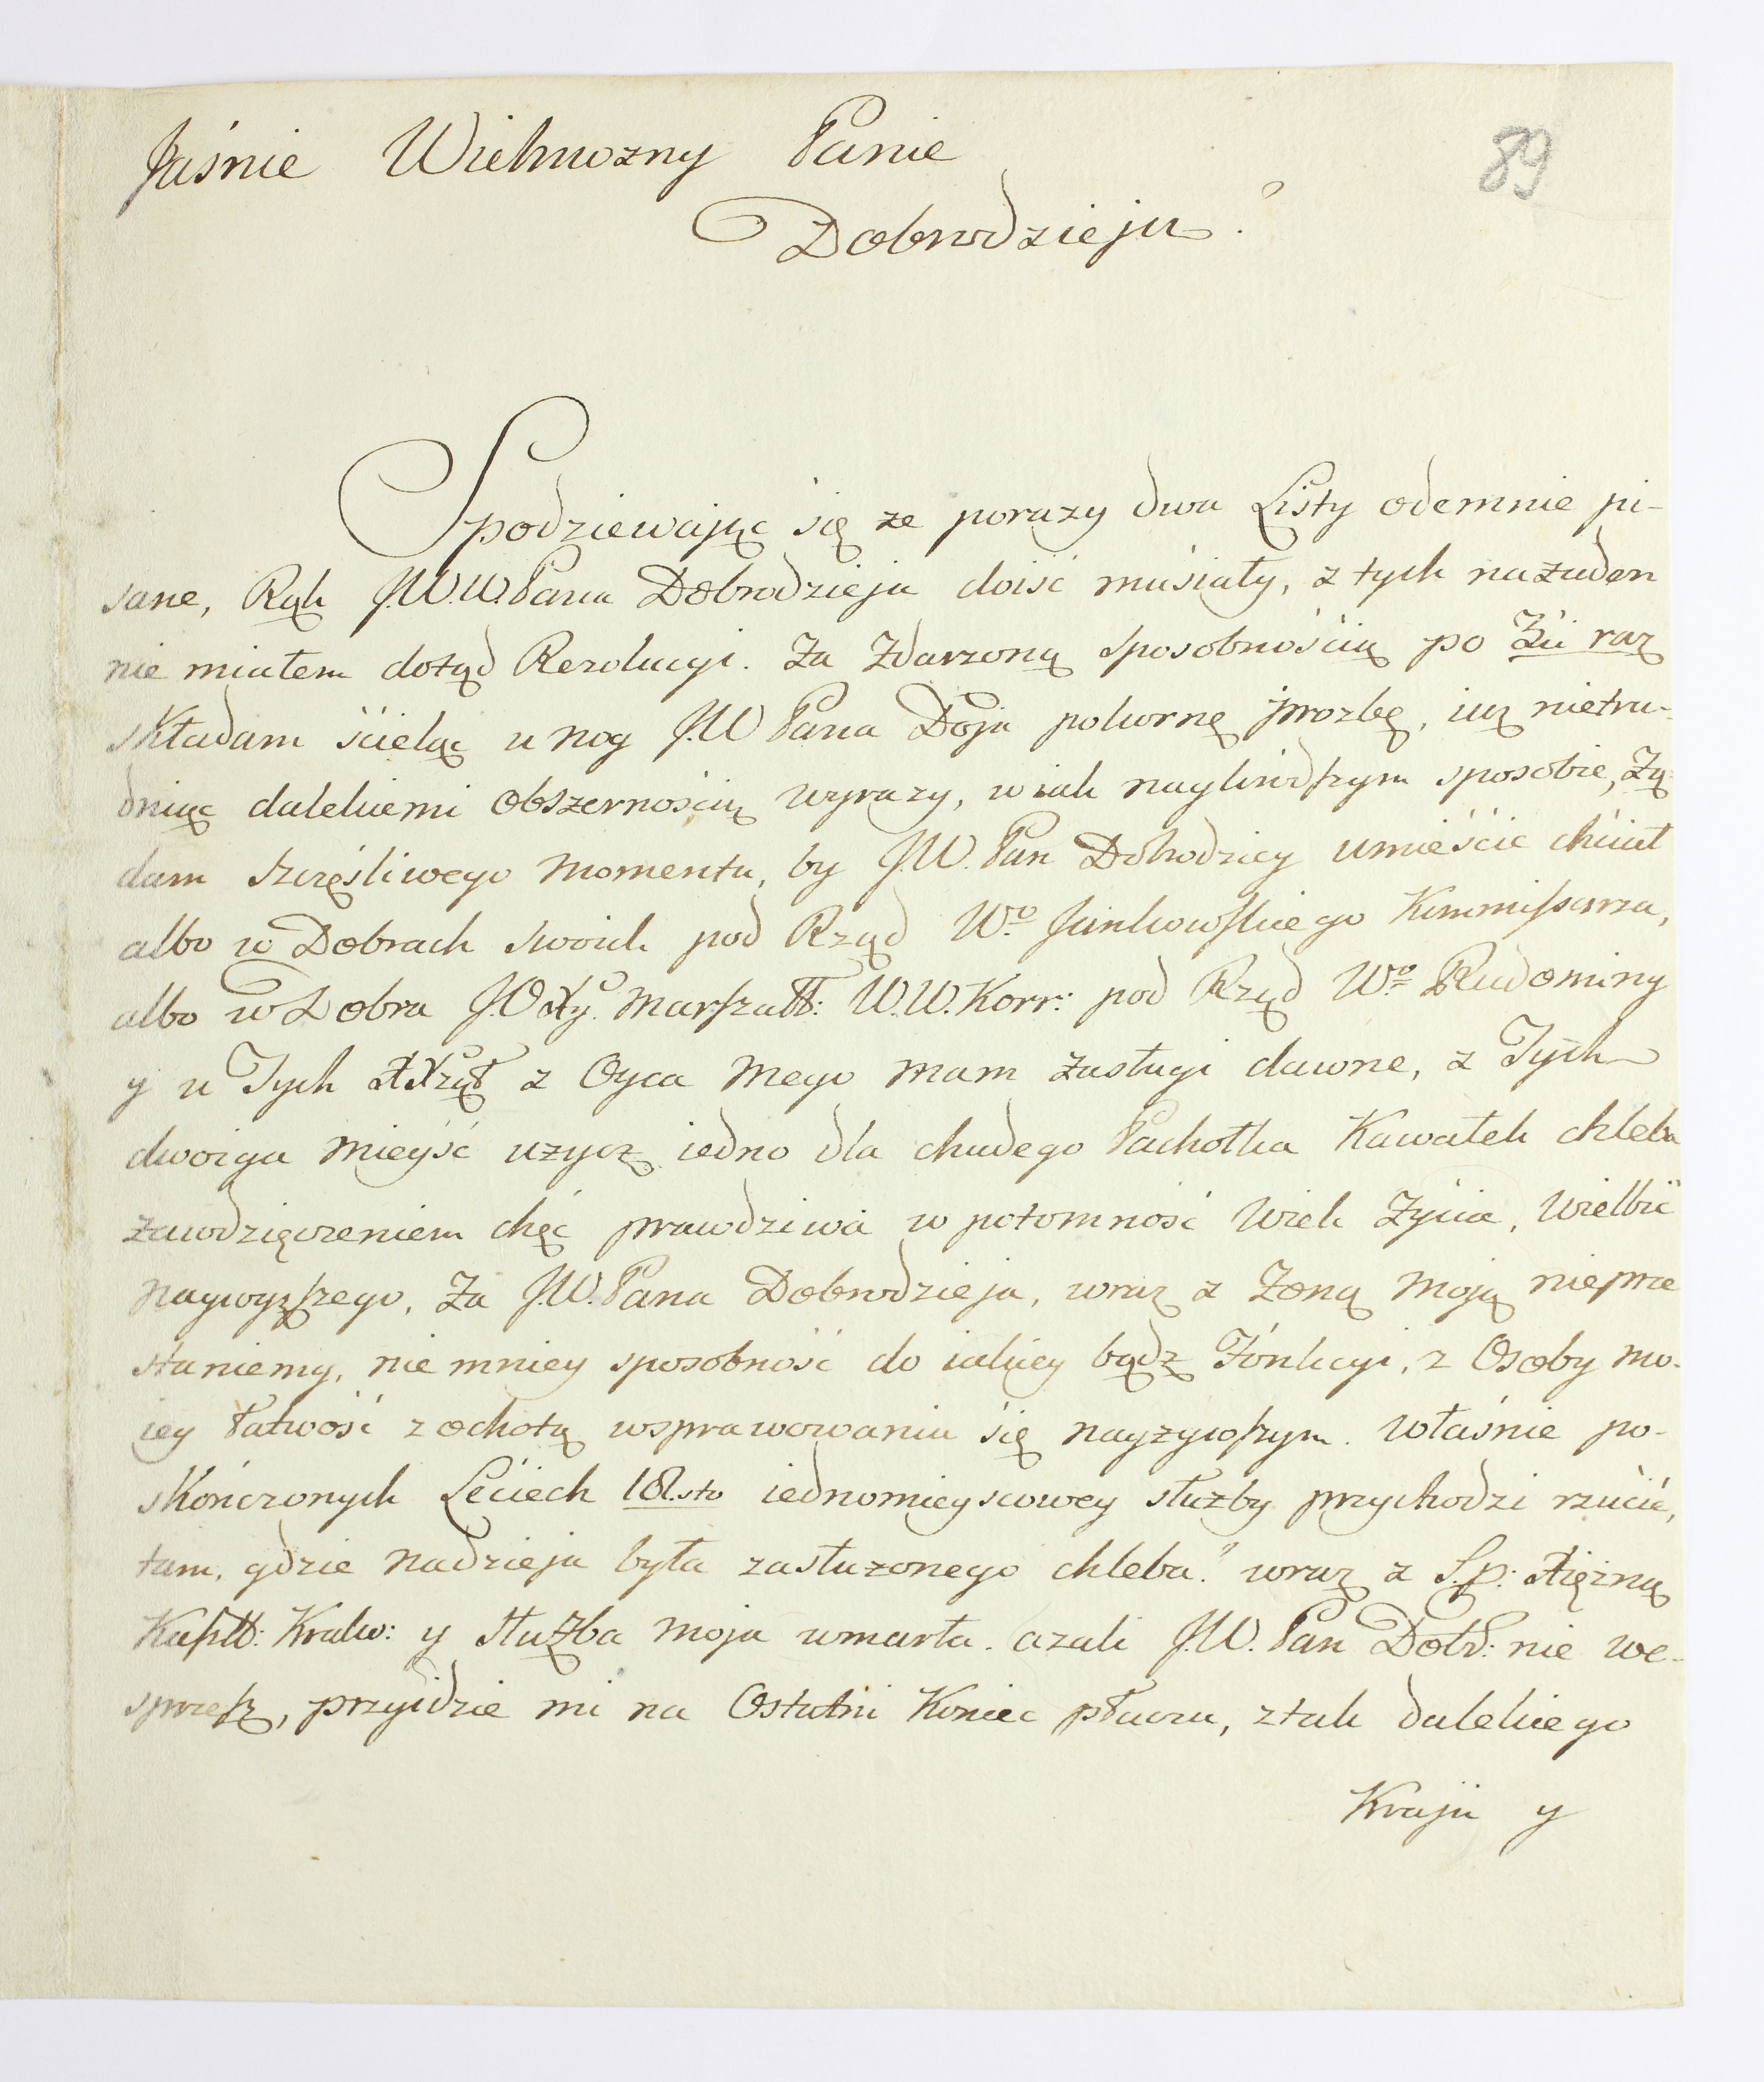 Jaśnie Wielmozny Panie
89
Dobrodzieju.
Spodziewając się ze porazy dwa Listy odemnie pi-
sane, Rąk J.W.W. Pana Dobrodzieja doiść musiały, z tych nazaden
nie miałem dotąd Rezolucyi. Za Zdarzoną sposobnością po raz
składam ścieląc u nog J.W Pana Doja pokorną prozbę, iuz nietru-
dniąc dalekiemi obszernością wyrazy, w iak naykrodszym sposobie, Zą-
dam szczęśliwego momentu, by J.W. Pan Dobrodziey umieścic chciał
albo w Dobrach swoich pod Rząd Wo Jankowskiego Kommissarza,
albo w Dobra J.O Marszałł: W.W. Korr: pod Rząd Wo Rudominy
y u Tych z Oyca mego mam zasługi dawne, z Tych
dwoiga mieyść uzycz iedno dla chudego Pachołka Kawałek chleba
zawdzięczeniem chęć prawdziwa w potomność Wiek Zycia, Wielbić
naywyzszego, Za J.W. Pana Dobrodzieja, wraz z Zoną moją nieprze
staniemy, nie mniey sposobność do iakiey bądz Fónkcyi, z Osoby mo-
iey łatwość z ochotą wsprawowaniu się nayzywszym. właśnie po-
skończonych Leciech 18.sto iednomieyscowey służby przychodzi rzucić,
tam, gdzie nadzieja była zasłuzonego chleba? wraz z S.p: Xięzną
Kasztt: Krakw: y służba moja umarła. azali J.W. Pan Dobr: nie we-
sprzesz, przyidzie mi na Ostatni Koniec płaczu, ztak dalekiego
Kraju y